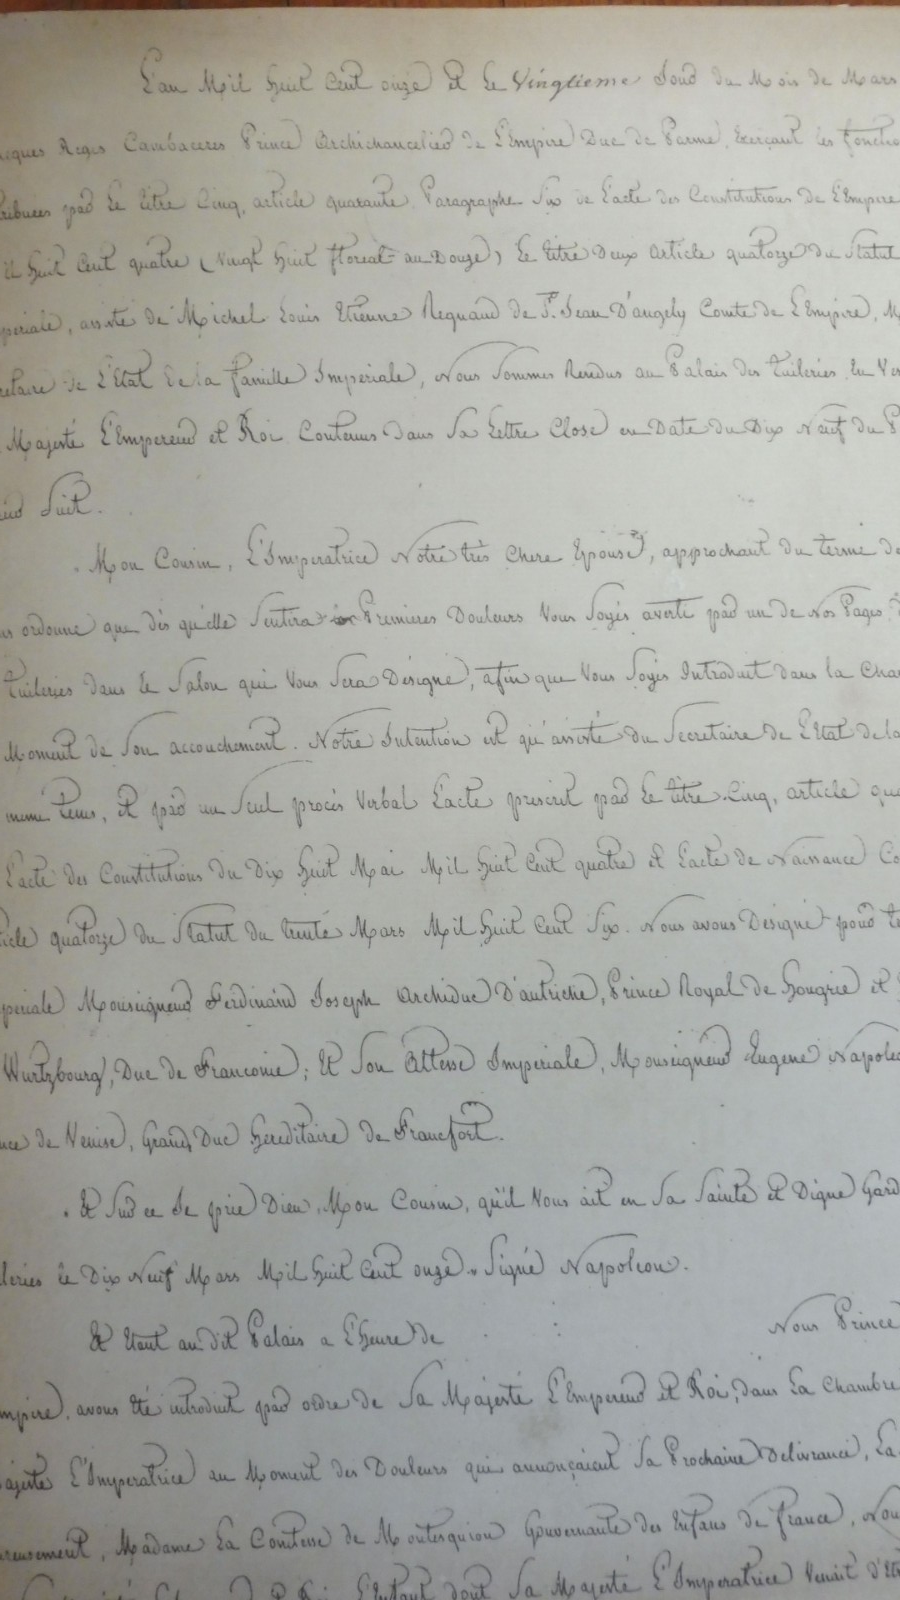 L'an Mil huit Cent onze et le Vingtieme Jour du Mois de Mars
acques Regis Cambaceres Prince Archichancelier de L'Empire Duc de Parme, Exerçant les fonctio
tribuees par Le titre Cinq, article quarante Paragraphe Six de L'acte des Constitutions de L'Empire
il huit Cent quatre (Vingt huit floreal an Douze) Le titre Deux Article quatorze du Statut
periale, assisté de Michel Louis Etienne Regnaud de St. Jean D'angely Comte de L'Empire, M
retaire de L'Etat de la famille Imperiale, Nous Sommes Rendus au Palais des Tuileries, En Ver
Majesté L'Empereur et Roi Contenus dans Sa Lettre Close en Date du Dix Neuf du P
Suit.
Mon Cousin, L'Imperatrice Notre très chere Epouse, approchant du terme de
us ordonne que dès qu'elle Sentira les Premieres Douleurs Vous Soyés averti par un de Nos Pages
Tuileries dans Le Salon qui Vous Sera Désigné, afin que Vous Soyés Introduit dans la Cha
Moment de Son accouchement. Notre Intention est qu'assisté du Secretaire de L'Etat de la
meme tems, et par un Seul procès Verbal L'acte prescrit par Le titre Cinq, article qua
L'acte des Constitutions du Dix huit Mai Mil huit Cent quatre et L'acte de Naissance Co
ticle quatorze du Statut du trente Mars Mil huit Cent Six. Nous avons Designé pour te
periale Monseigneur Ferdinand Joseph Archiduc D'autriche, Prince Royal de Hongrie et
Wurtzbourg, Duc de Franconie; Et Son Altesse Imperiale, Monseigneur Eugene Napole
nce de Venise, Grand Duc hereditaire de Francfort.
Et Sur ce Je prie Dieu, Mon Cousin, qu'il Vous ait en Sa Sainte et Digne Gard
leries le Dix Neuf Mars Mil huit Cent onze. Signé Napoleon.
Et Etant au dit Palais a L'heure de Nous Prince
mpire, avons été introduit par ordre de Sa Majesté L'Empereur et Roi, dans La Chambre
ajeste L'Imperatrice au Moment des Douleurs qui annonçaient Sa Prochaine Delivrance, La
reusement, Madame La Comtesse de Montesquiou Gouvernante des Enfans de france, Nou
L'Enfant dont Sa Majesté L'Imperatrice Venait d'Etr